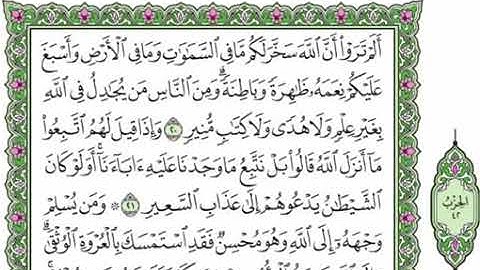 أَلَمْ تَرَوْا۟ أَنَّ ٱللَّهَ سَخَّرَ لَكُم مَّا فِى ٱلسَّمَٰوَٰتِ وَمَا فِى ٱلْأَرْضِ وَأَسْبَغَ
عَلَيْكُمْ نِعَمَهُۥ ظَٰهِرَةً وَبَاطِنَةً ۗ وَمِنَ ٱلنَّاسِ مَن يُجَٰدِلُ فِى ٱللَّهِ
بِغَيْرِ عِلْمٍ وَلَا هُدًى وَلَا كِتَٰبٍ مُّنِيرٍ ٢٠ وَإِذَا قِيلَ لَهُمُ ٱتَّبِعُوا۟
مَآ أَنزَلَ ٱللَّهُ قَالُوا۟ بَلْ نَتَّبِعُ مَا وَجَدْنَا عَلَيْهِ ءَابَآءَنَآ ۚ أَوَلَوْ كَانَ
ٱلشَّيْطَٰنُ يَدْعُوهُمْ إِلَىٰ عَذَابِ ٱلسَّعِيرِ ٢١ ۞ وَمَن يُسْلِمْ
وَجْهَهُۥٓ إِلَى ٱللَّهِ وَهُوَ مُحْسِنٌ فَقَدِ ٱسْتَمْسَكَ بِٱلْعُرْوَةِ ٱلْوُثْقَىٰ ۗ
الحزب
٤٢